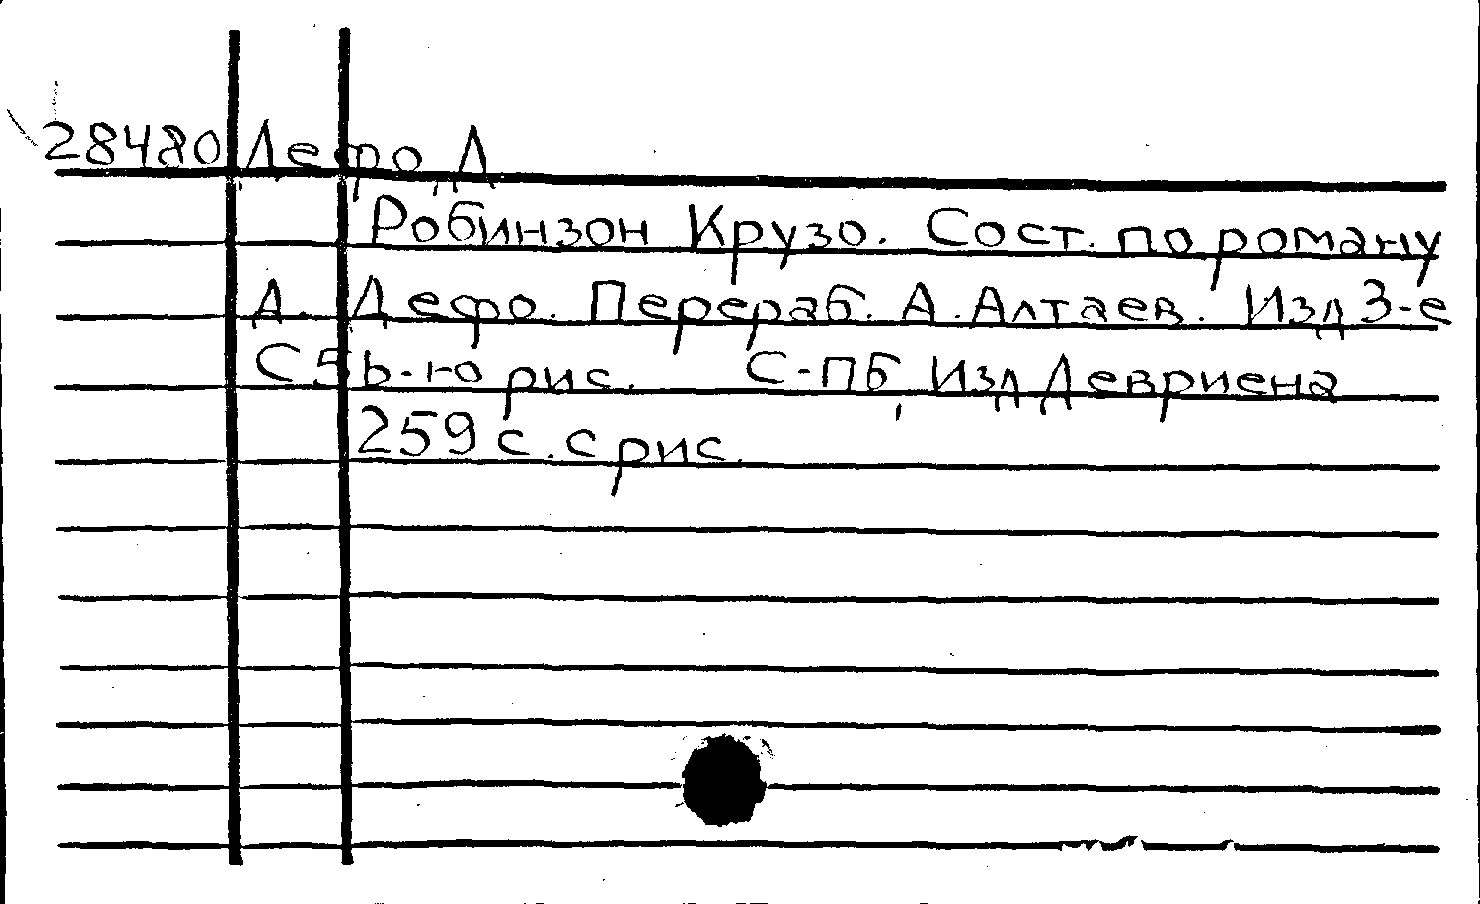 28480 Дефо, Д
Робинзон Крузо. Сост. по роману
Д. Дефо. Перераб. А. Алтаев. Изд 3-е
С 5ь-ю рис. С-ПБ, Изд Девриена
259 с. с рис.